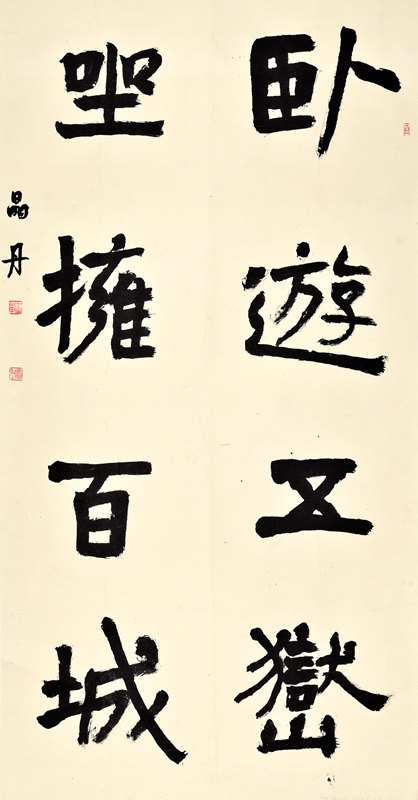 卧遊五嶽
坐擁百城
晶丹